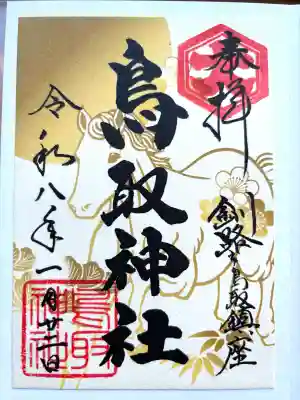 奉拝
釧路 鳥取鎮座
鳥取神社
令和八年一月廿 日
鳥取
神社